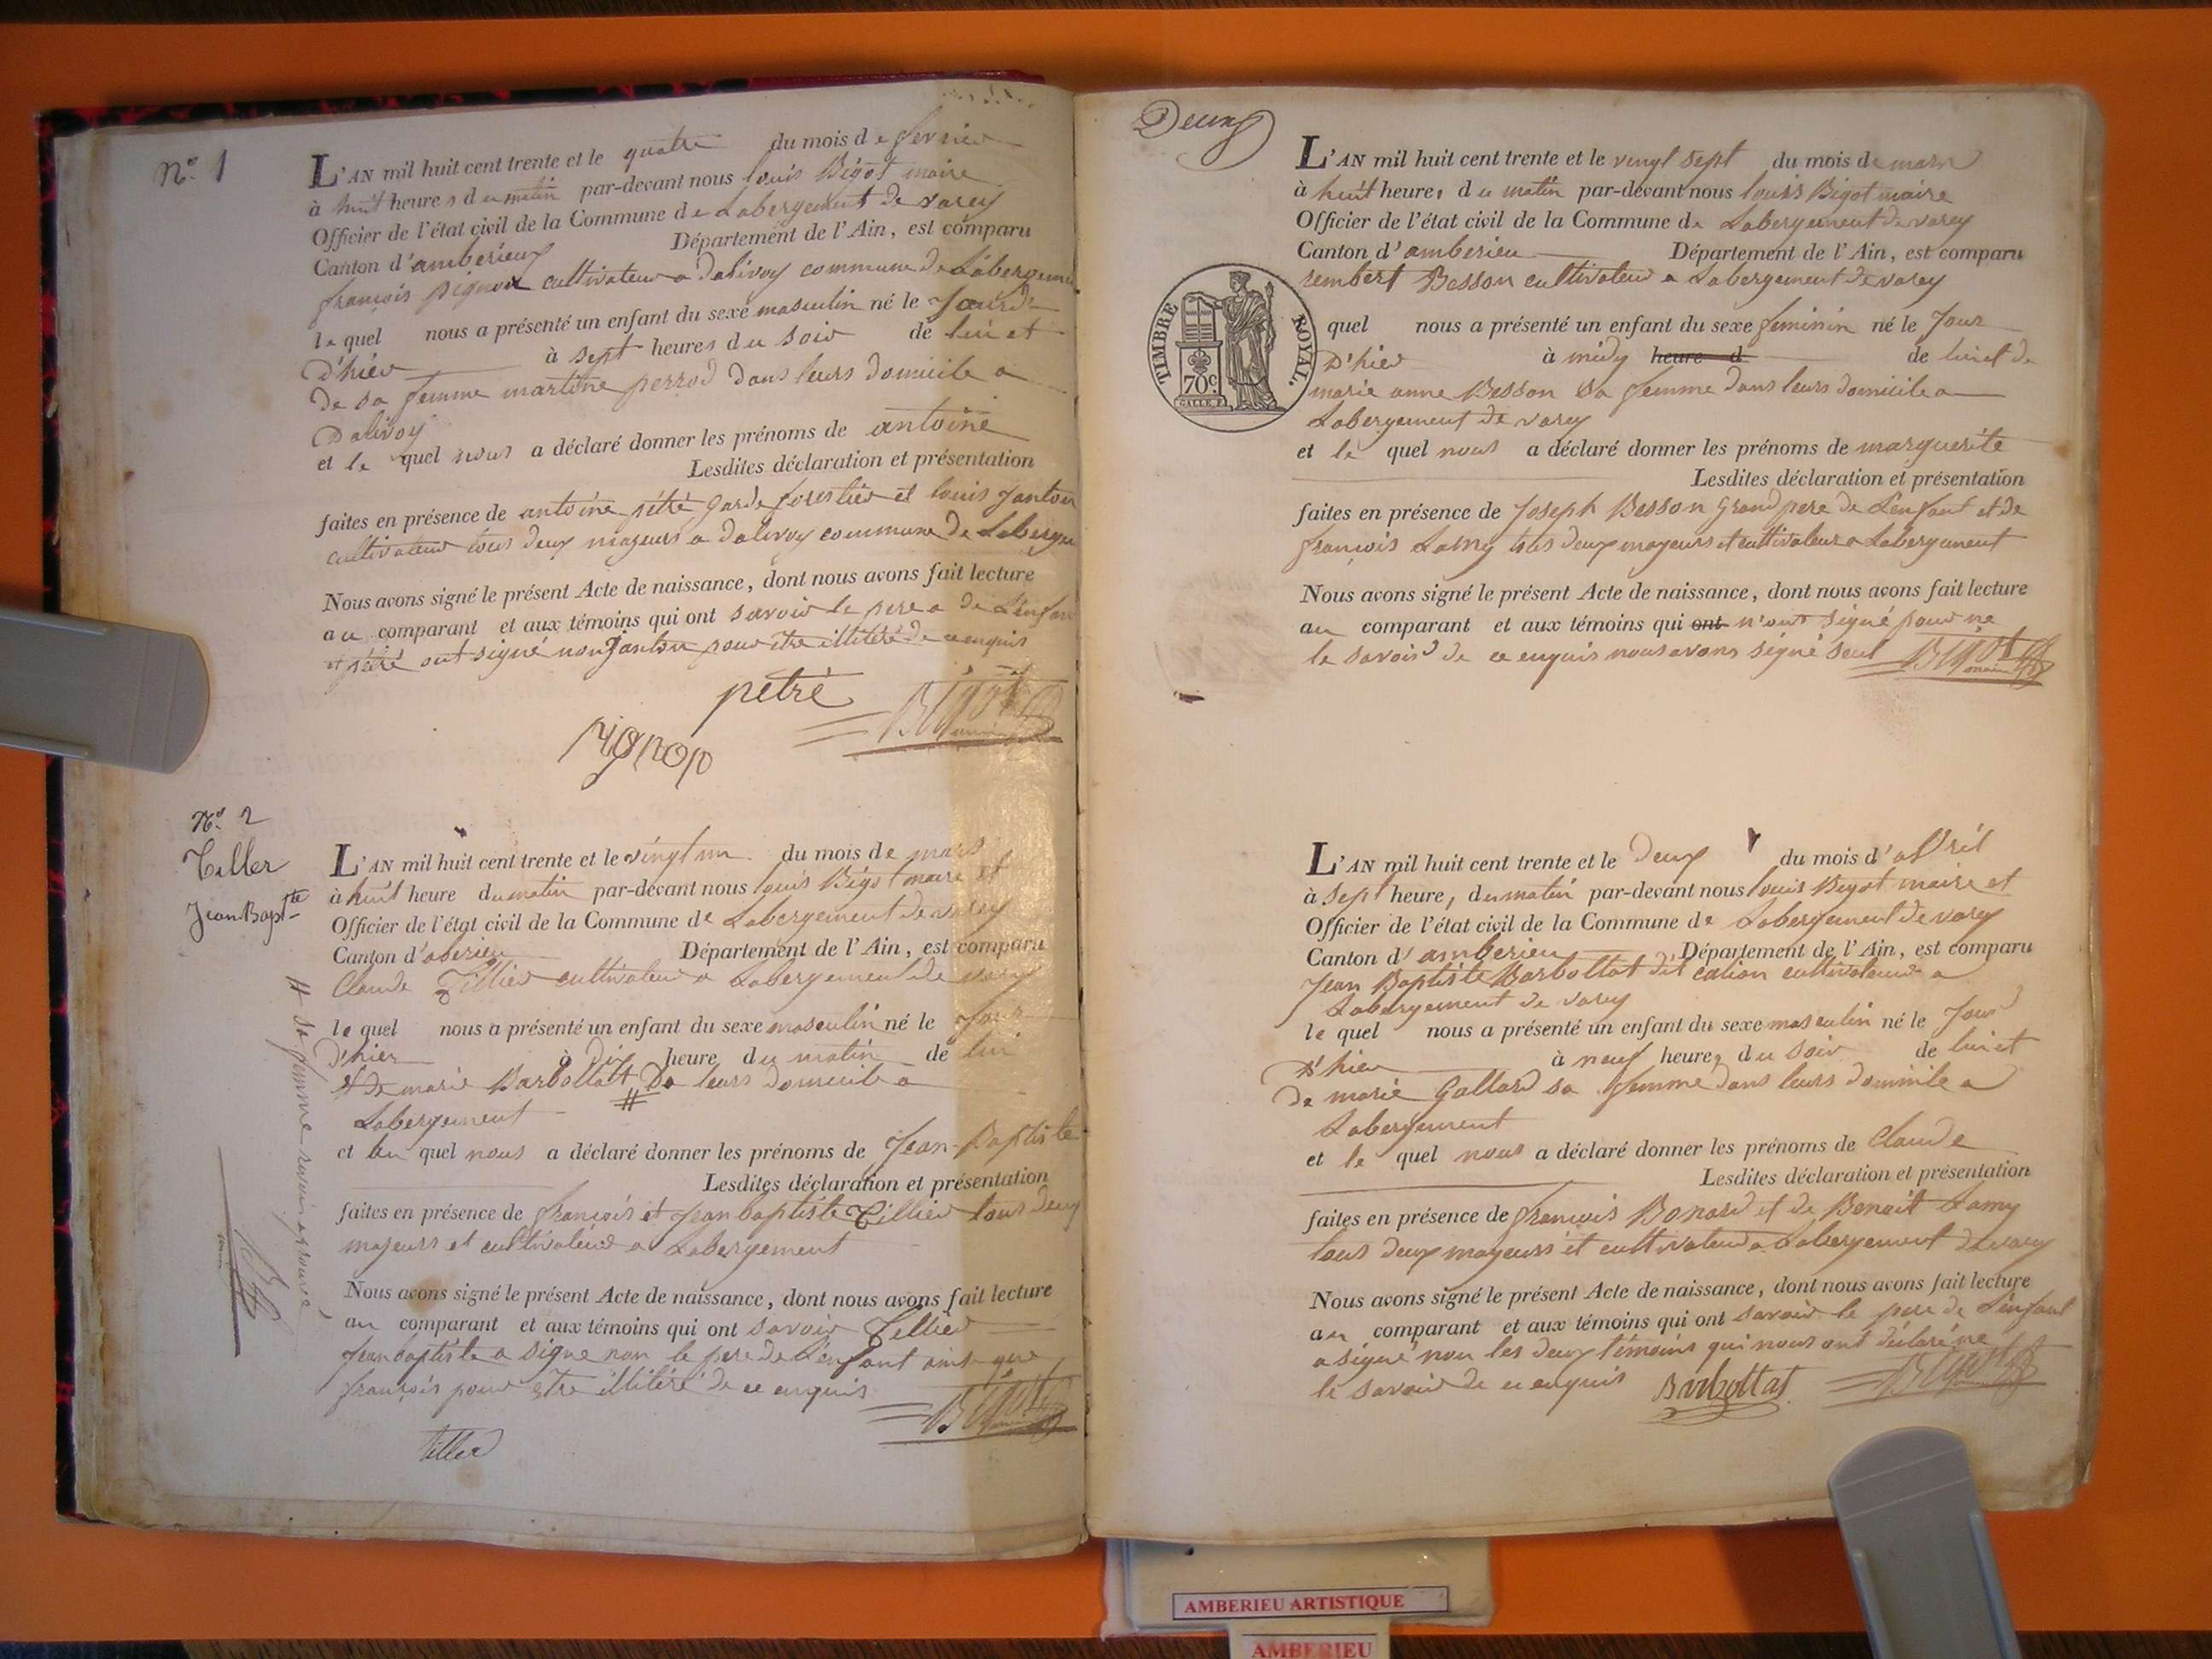 N.º 1
L'AN mil huit cent trente et le quatre du mois de fevrier
à huit heures du matin par-devant nous louis Bigot maire
Officier de l'état civil de la Commune de Labergement de varey
Canton d'amberieux Département de l'Ain, est comparu
françois pignou cultivateur a dalivoy commune de Labergeme
le quel nous a présenté un enfant du sexe masculin né le Jour
D'hier à sept heures du soir de lui et
De sa femme martine perrod dans leurs domicile a
Dalivoy
et le quel nous a déclaré donner les prénoms de antoine
Lesdites déclaration et présentation
faites en présence de antoine pétré garde forestier et louis Janton
cultivateur tous deux majeurs a dalivoy commune de Laberge
Nous avons signé le présent Acte de naissance, dont nous avons fait lecture
au comparant et aux témoins qui ont savoir le pere de L'enfan
et pétré ont signé non Janton pour être illitéré de ce enquis
pétré
Bigot
N.º 2
Tiller
Jean Bapte
L'AN mil huit cent trente et le vingt un du mois de mars
à huit heure du matin par-devant nous louis Bigot maire et
Officier de l'état civil de la Commune de Labergement de varey
Canton d'aberieu Département de l'Ain, est comparu
Claude Tillier cultivateur a Labergement de varey
le quel nous a présenté un enfant du sexe masculin né le Jour
D'hier à Dix heure du matin de lui
et De marie Barbottat # Da leurs domicile a
Labergement
et le quel nous a déclaré donner les prénoms de Jean-Baptiste
Lesdites déclaration et présentation
faites en présence de françois et Jean baptiste Tillier tous deux
majeurs et cultivateur a Labergement
Nous avons signé le présent Acte de naissance, dont nous avons fait lecture
au comparant et aux témoins qui ont savoir Tellier
Jean baptiste a signe non le pere de L'enfant ainsi que
françois pour être illitéré de ce enquis
Bigot
Tiller
# sa femme
Deux
TIMBRE ROYAL.
70c
L'AN mil huit cent trente et le vingt sept du mois de mars
à huit heures du matin par-devant nous louis Bigot maire
Officier de l'état civil de la Commune de Labergement de varey
Canton d'amberieu Département de l'Ain, est comparu
rembert Besson cultivateur a Labergement de varey
quel nous a présenté un enfant du sexe feminin né le Jour
D'hier à midy heure d de lui et de
marie anne Besson sa femme dans leurs domicile a
Labergement de varey
et le quel nous a déclaré donner les prénoms de marguerite
Lesdites déclaration et présentation
faites en présence de Joseph Besson Grand pere de L'enfant et de
françois Lamy tous deux majeurs et cultivateur a Labergement
Nous avons signé le présent Acte de naissance, dont nous avons fait lecture
au comparant et aux témoins qui ont n'ont signé pour ne
le savoir de ce enquis nous avons signé seul Bigot maire
L'AN mil huit cent trente et le Deux du mois d'avril
à sept heure, du matin par-devant nous louis Bigot maire et
Officier de l'état civil de la Commune de Labergement de varey
Canton d'amberieu Département de l'Ain, est comparu
Jean Baptiste Barbottat dit cation cultivateur a
Labergement de varey
le quel nous a présenté un enfant du sexe masculin né le Jour
D'hier à neuf heures du soir de lui et
De marie Gallard sa femme dans leurs domicile a
Labergement
et le quel nous a déclaré donner les prénoms de Claude
Lesdites déclaration et présentation
faites en présence de françois Bonard et de Benoit Lamy
tous deux majeurs et cultivateur a Labergement de varey
Nous avons signé le présent Acte de naissance, dont nous avons fait lecture
au comparant et aux témoins qui ont savoir le pere de L'enfant
a signé non les deux témoins qui nous ont déclaré ne
le savoir de ce enquis Barbottat Bigot
AMBERIEU ARTISTIQUE
AMBERIEU